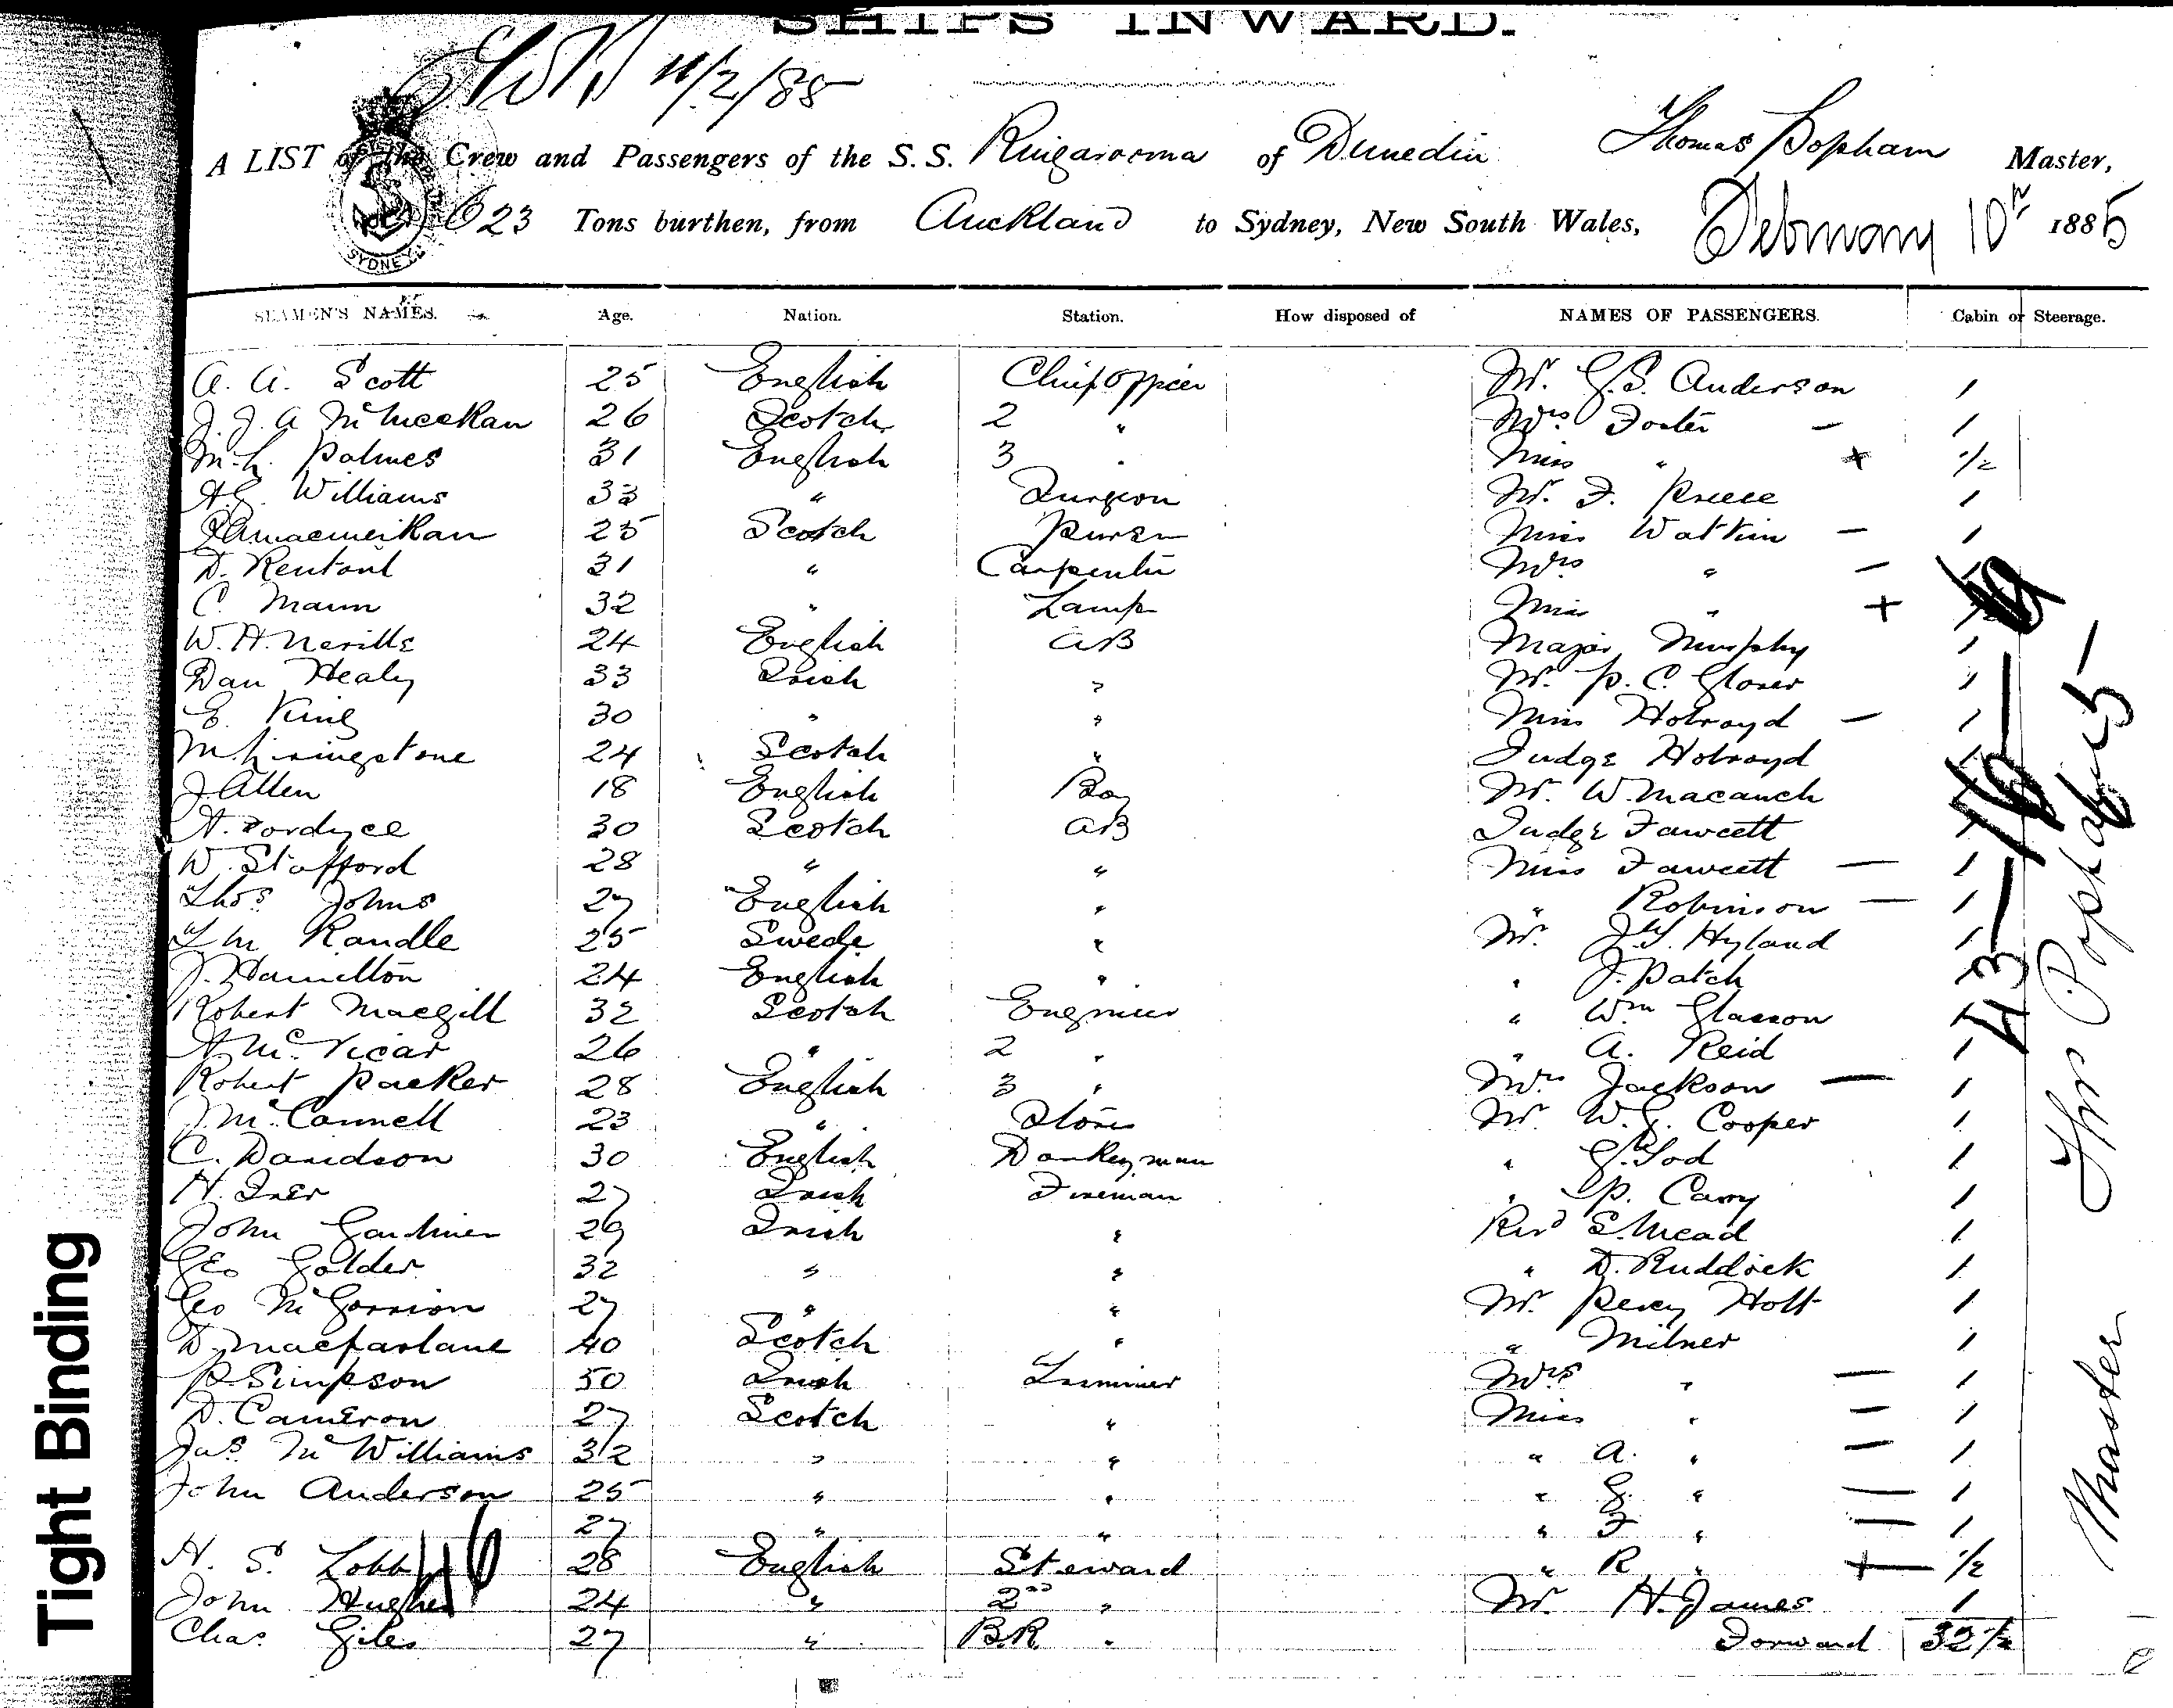 SHIPS INWARD.
11/2/85
A LIST of the Crew and Passengers of the S. S. Ringarooma of Dunedin Thomas Popham Master,
623 Tons burthen, from Auckland to Sydney, New South Wales, February 10th 1885
SYDNEY
SEAMEN'S NAMES. Age. Nation. Station. How disposed of NAMES OF PASSENGERS. Cabin or Steerage.
A. A. Scott 25 English Chief Officer Mr. G.S. Anderson 1
J. J. A McMeekan 26 Scotch 2 " Mrs Foster — 1
M. L. Palmes 31 English 3 " Miss " + 1/2
H.G. Williams 33 " Surgeon Mr. F. Preece 1
Macmeikan 25 Scotch Purser Miss Watkin — 1
D. Rentoul 31 " Carpenter Mrs " —
C. Mann 32 " Lamp Miss " +
W. H. Neville 24 English AB Major Murphy 1
Dan Healy 33 Irish " Mr. P. C. Glover 1
E. King 30 " " Miss Holroyd — 1
M. Livingstone 24 Scotch " Judge Holroyd
J Allen 18 English Boy Mr. W. Macanch
A. Fordyce 30 Scotch AB Judge Fawcett 1
W. Stafford 28 " " Miss Fawcett — 1
Thos. Johns 27 English " " Robinson — 1
Randle 25 Swede " Mr. Hyland 1
J. Hamilton 24 English " " J. Patch 1
Robert Macgill 32 Scotch Engineer " Wm Glasson 1
A Mc.Vicar 26 " 2 " " A. Reid 1
Robert Packer 28 English 3 " Mrs Jackson — 1
J. McConnell 23 " Stores Mr. W. G. Cooper 1
C. Davidson 30 English Donkeyman " 1
H. Iver 27 Irish Fireman " P. Carry 1
John Gardiner 29 Irish " Revd S. Mead 1
Geo Golder 32 " " " D. Ruddock 1
Geo 27 " " Mr. Percy Holt 1
D. Macfarlane 40 Scotch " " Milner 1
P Simpson 50 Irish Trimmer Mrs " — 1
D. Cameron 27 Scotch " Miss " — 1
Jas McWilliams 32 " " " A. " — 1
John Anderson 25 " " " G. " — 1
27 " " " F " — 1
H. S. Lobb 28 English Steward " R " + 1/2
John Hughes 24 " 2nd " Mr. H. James 1
Chas. Giles 27 " B.R. " Forward 32 1/2
46
43
Thos Popham
Master
Tight Binding